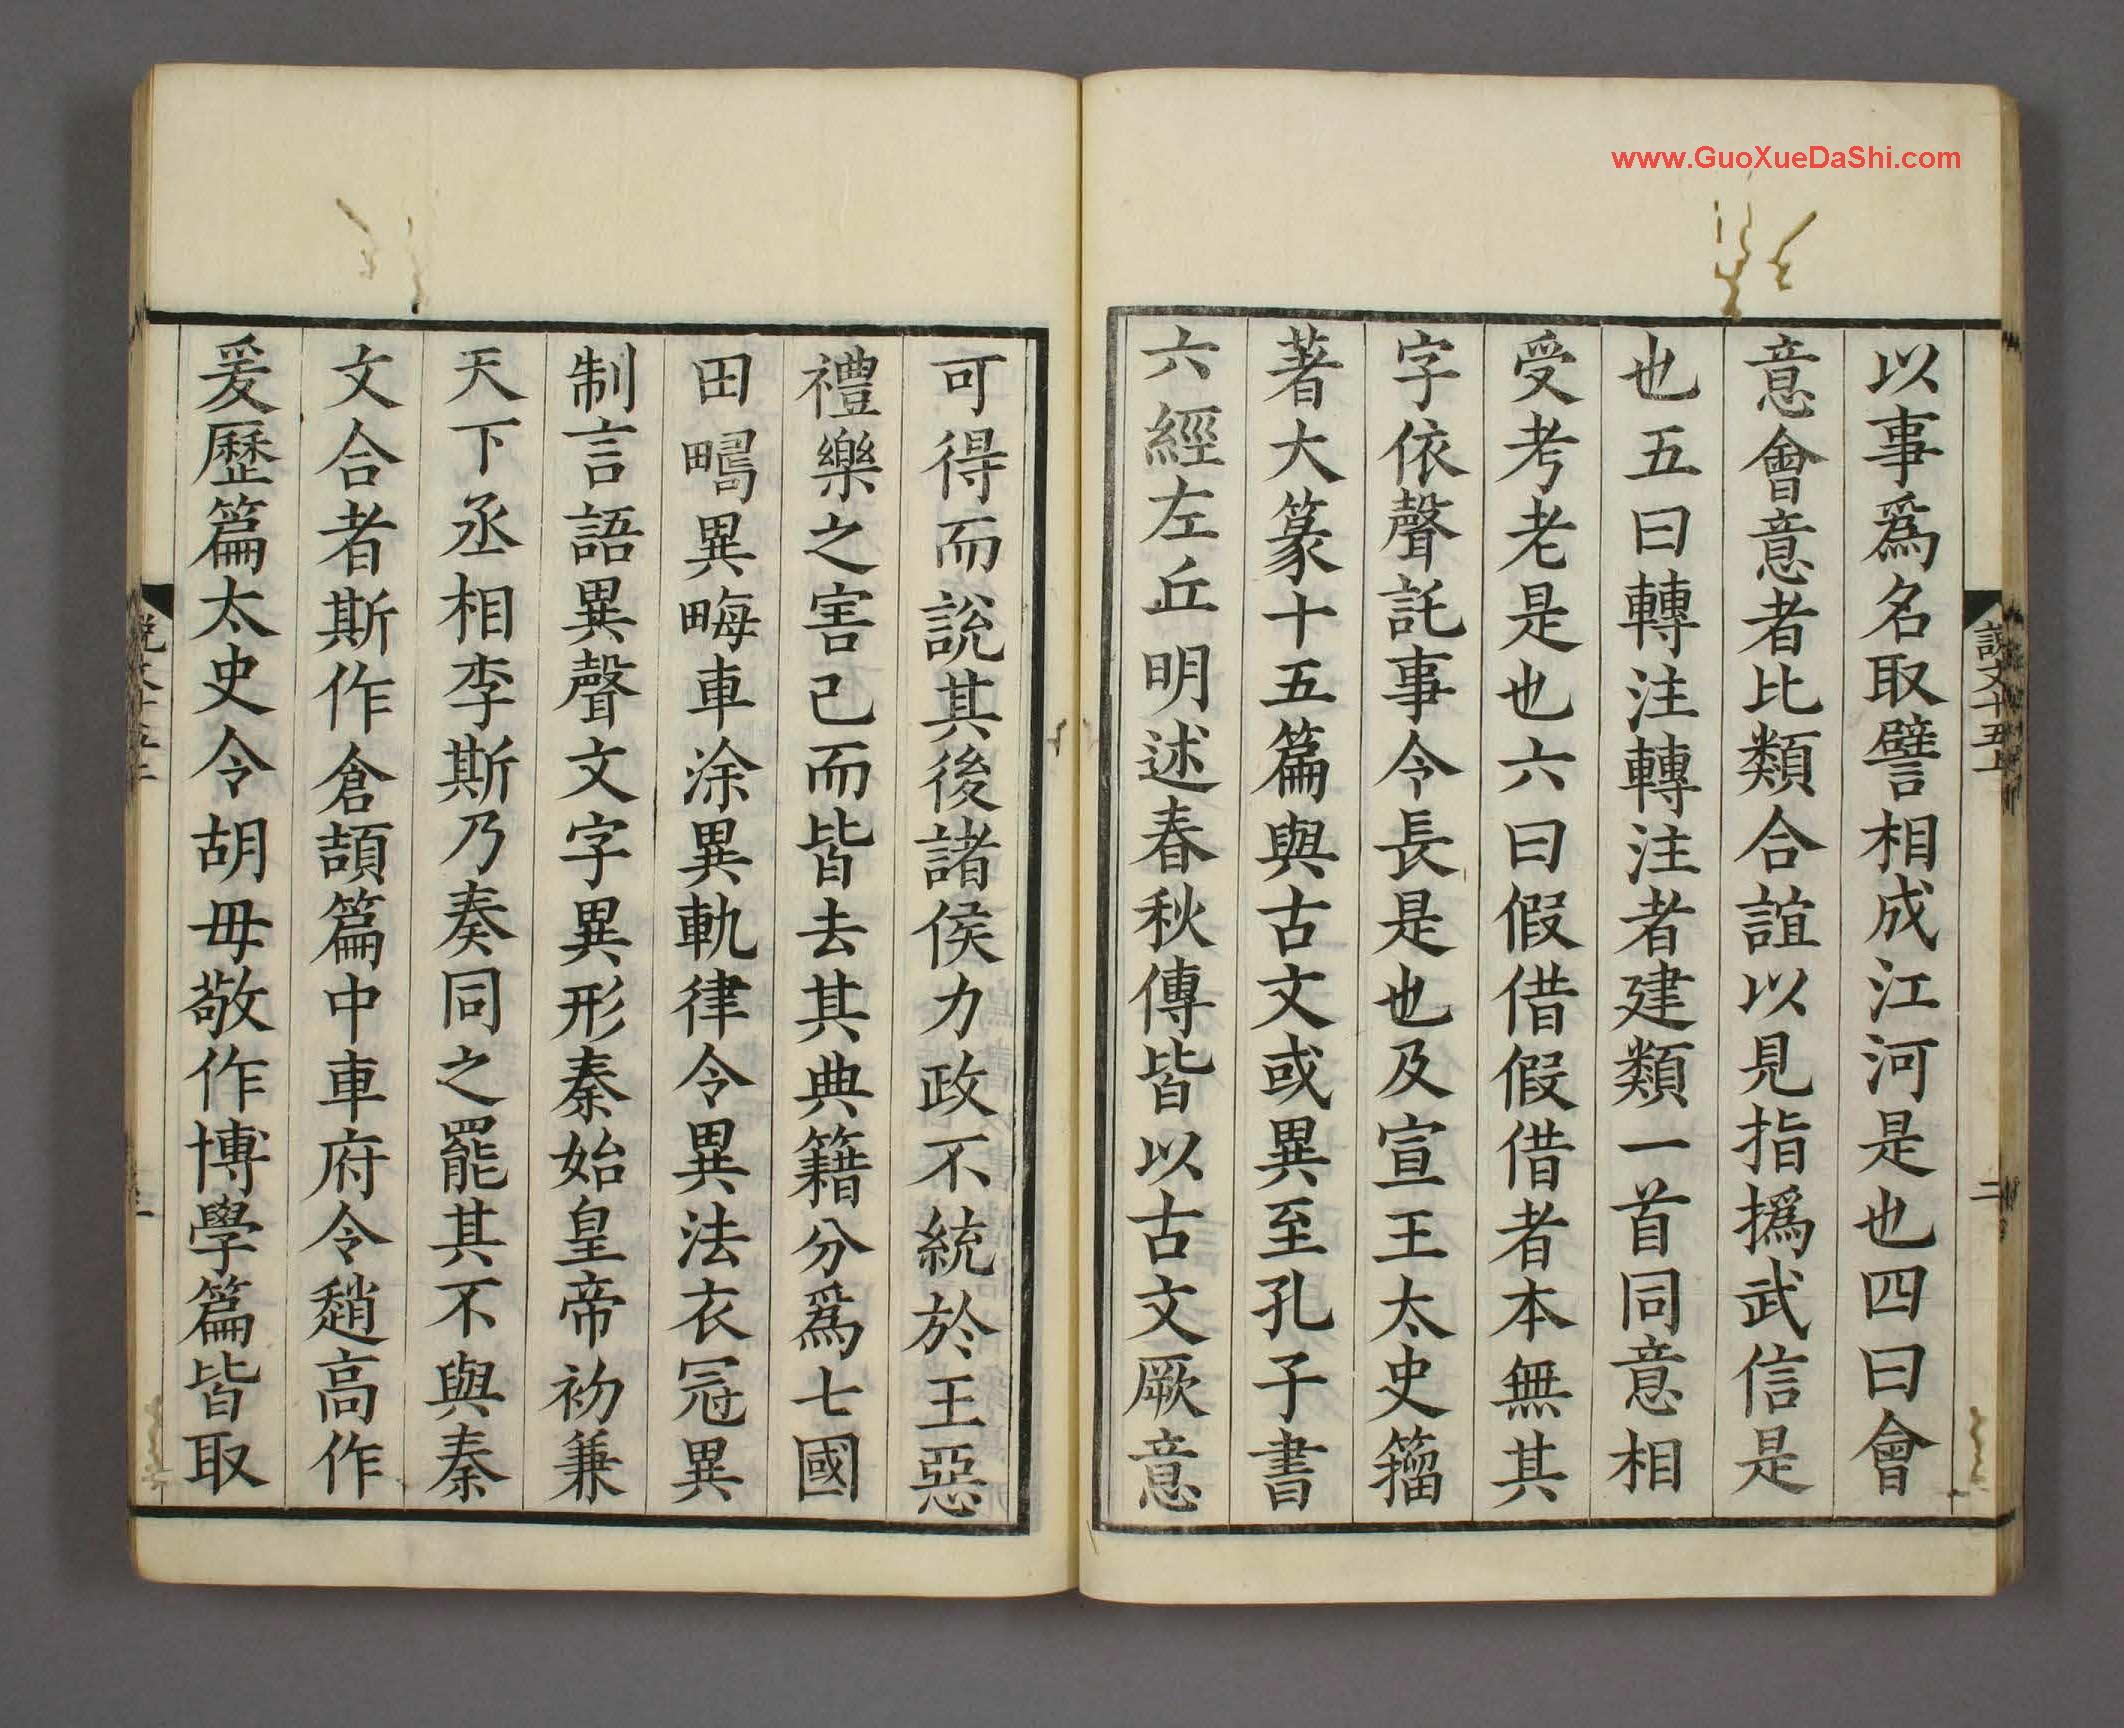 www.GuoXueDaShi.com
以事爲名取譬相成江河是也四曰會
意會意者比類合誼以見指撝武信是
也五曰轉注轉注者建類一首同意相
受考老是也六曰假借假借者本無其
字依聲託事令長是也及宣王太史籒
著大篆十五篇與古文或異至孔子書
六經左丘明述春秋傳皆以古文厥意
說文十五上
二
可得而說其後諸侯力政不統於王惡
禮樂之害己而皆去其典籍分爲七國
田疇異畮車涂異軌律令異法衣冠異
制言語異聲文字異形秦始皇帝初兼
天下丞相李斯乃奏同之罷其不與秦
文合者斯作倉頡篇中車府令趙高作
爰歷篇太史令胡毋敬作博學篇皆取